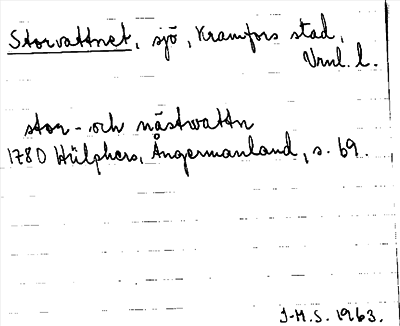 Storvattnet, sjö, Kramfors stad,
Vrnl. l.
stor- och nästvattn
1780 Hülphers, Ångermanland, s. 69.
J-H.S. 1963.